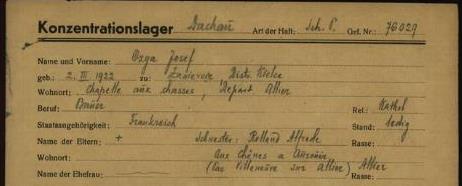 Konzentrationslager Dachau Art der Haft: Sch. P. Gef. Nr.: 76029
Name und Vorname: Ozga Josef
geb.: 2. III 1922 zu: Distr. Kielce
Wohnort: Chapelle aux chasses, Depart Allier
Beruf: Rel.: Kathol
Staatsangehörigkeit: Frankreich Stand: ledig
Name der Eltern: + Schwester: Rolland Alfrede Rasse:
Wohnort: aux Chênes a
(bei Villeneuve sur Allier) Allier
Name der Ehefrau: Rasse: